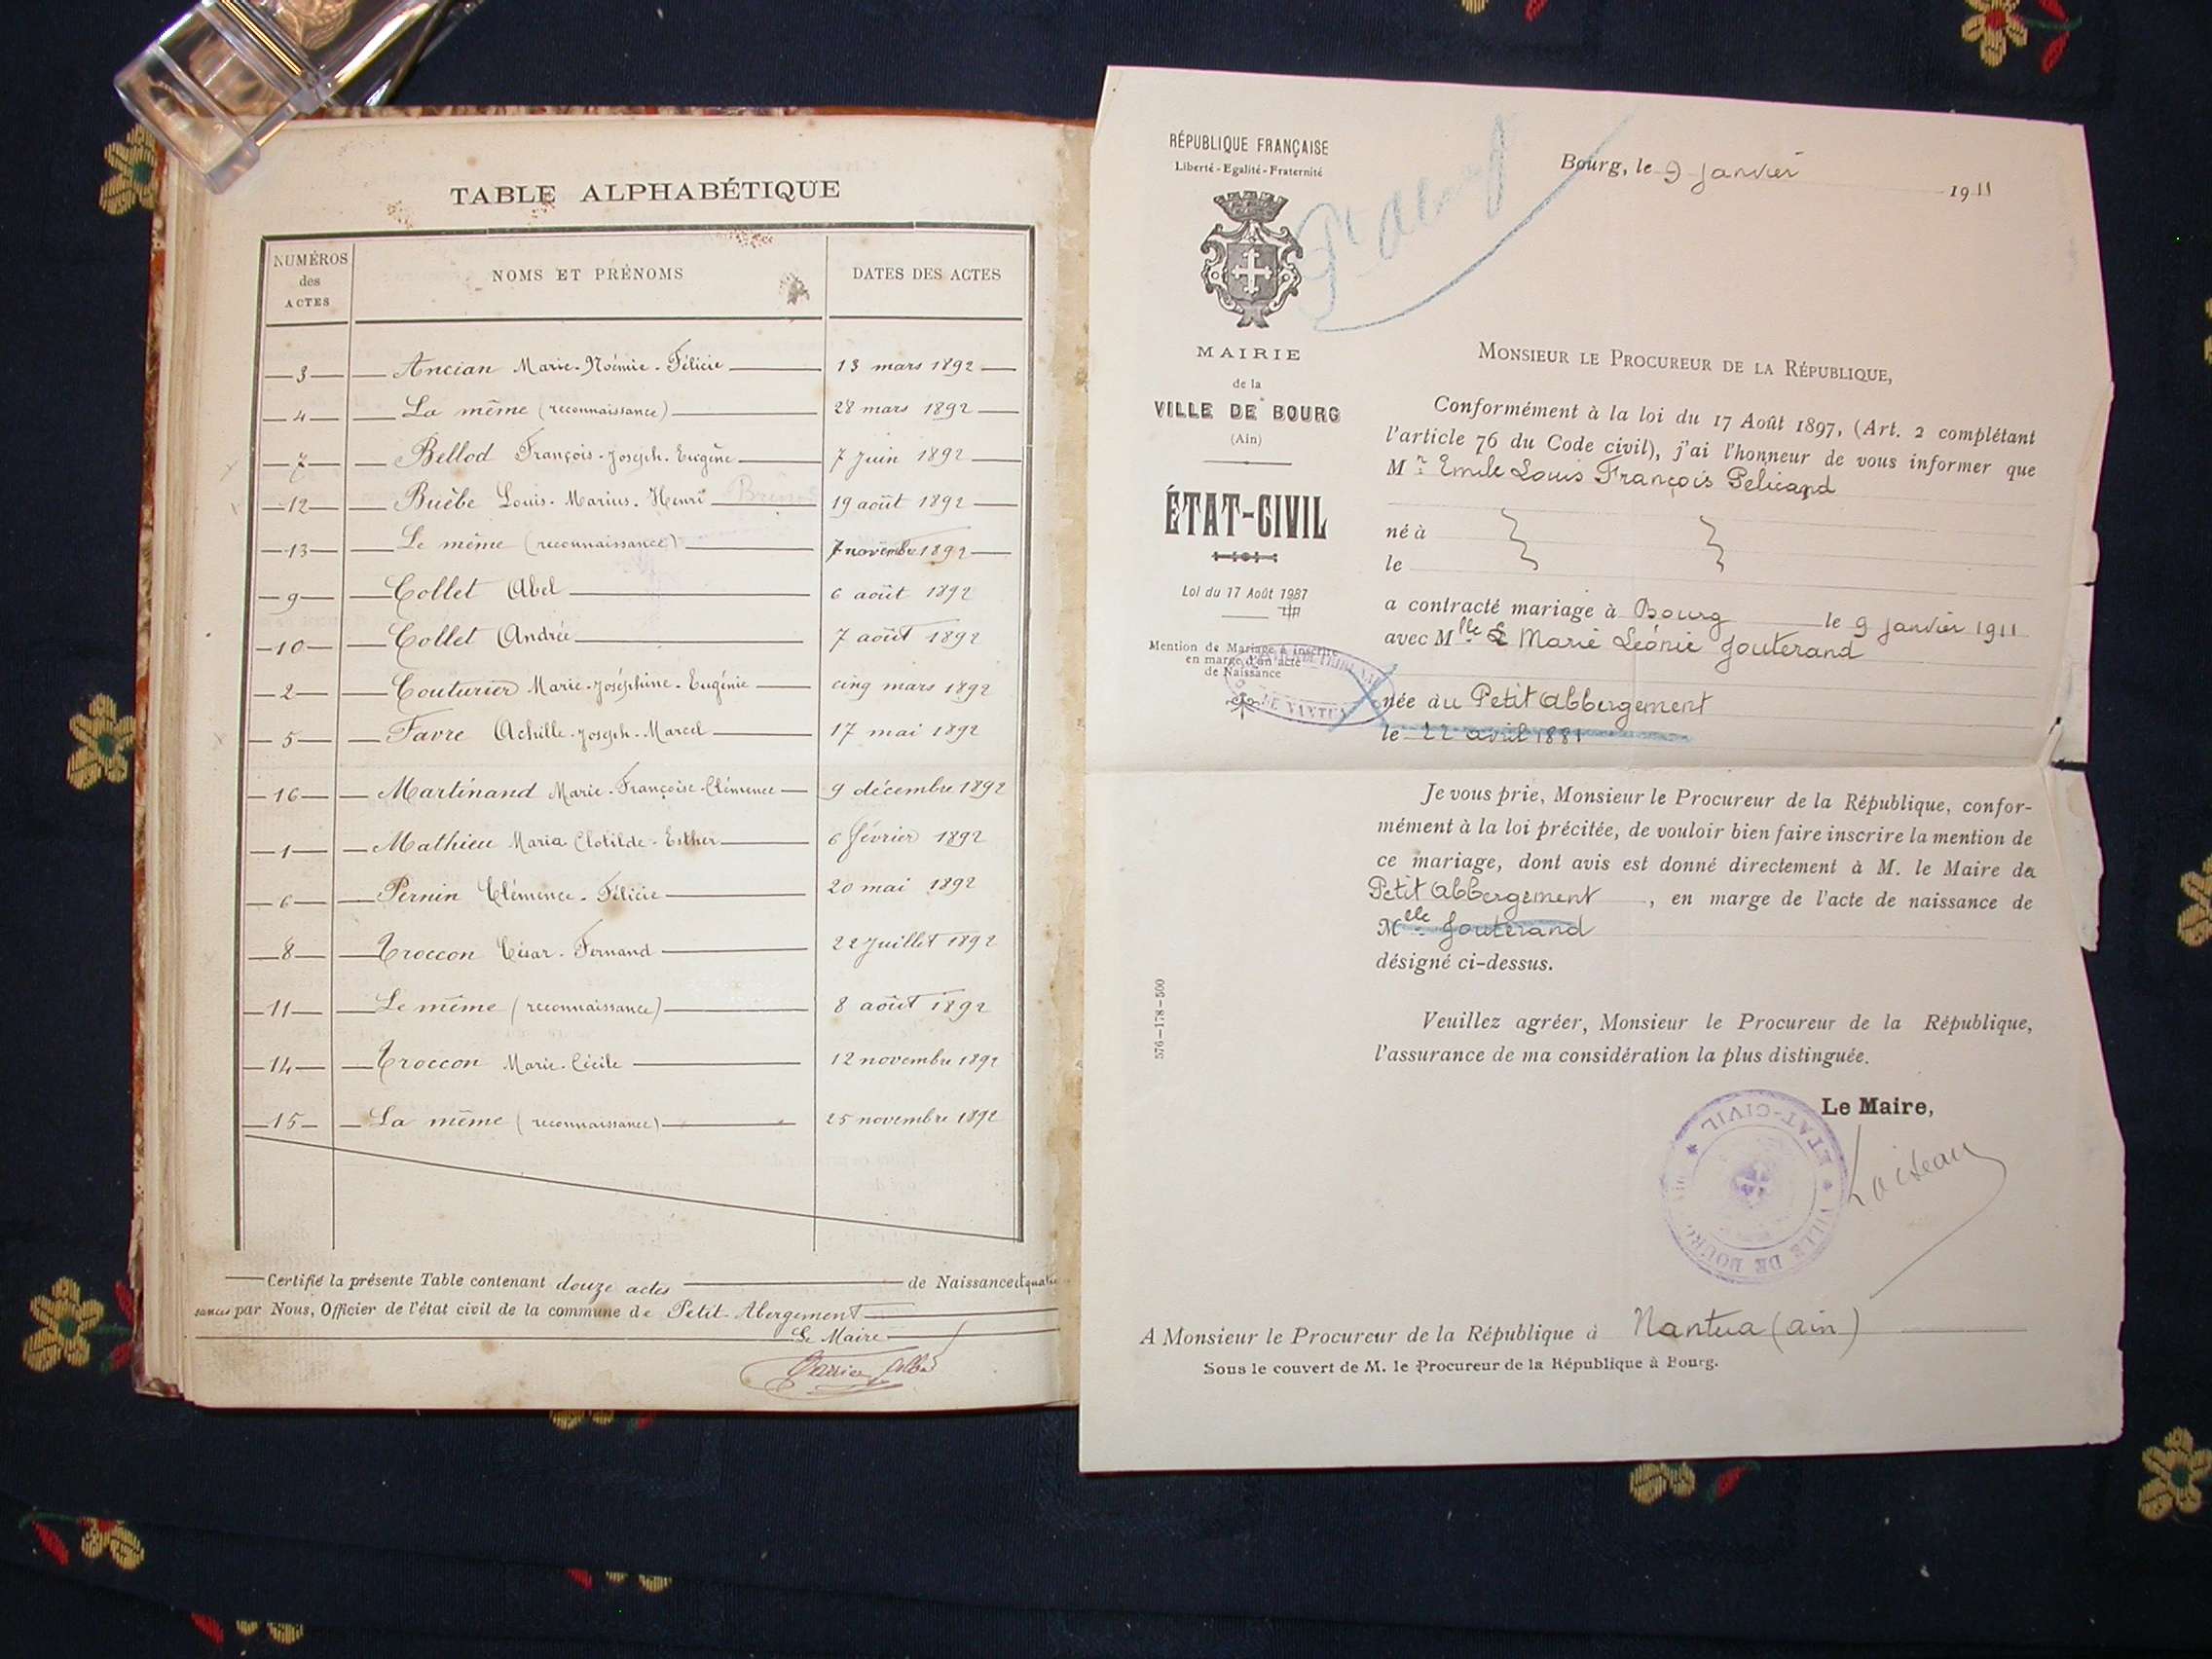 TABLE ALPHABÉTIQUE
NUMÉROS des ACTES
NOMS ET PRÉNOMS
DATES DES ACTES
3 Ancian Marie-Noémie-Félicie 13 mars 1892
4 La même (reconnaissance) 28 mars 1892
7 Bellod François-Joseph-Eugène 7 Juin 1892
12 Buèbe Louis-Marius-Henri 19 août 1892
13 Le même (reconnaissance) 7 novembre 1892
9 Collet Abel 6 août 1892
10 Collet Andrée 7 août 1892
2 Couturier Marie-Joséphine-Eugénie cinq mars 1892
5 Favre Achille-Joseph-Marcel 17 mai 1892
16 Martinand Marie-Françoise-Clémence 9 décembre 1892
1 Mathieu Maria Clotilde-Esther 6 février 1892
6 Pernin Clémence-Félicie 20 mai 1892
8 Troccon César-Fernand 22 Juillet 1892
11 Le même (reconnaissance) 8 août 1892
14 Troccon Marie-Cécile 12 novembre 1892
15 La même (reconnaissance) 25 novembre 1892
Certifié la présente Table contenant douze actes de Naissance et
par Nous, Officier de l'état civil de la commune de Petit-Abergement
Le Maire
RÉPUBLIQUE FRANÇAISE
Liberté-Egalité-Fraternité
MAIRIE
de la
VILLE DE BOURG
(Ain)
ÉTAT-CIVIL
Loi du 17 Août 1987
Mention de Mariage à inscrire
en marge d'un acte
de Naissance
DE NANTUA
576-178-500
Bourg, le 9 Janvier 1911
MONSIEUR LE PROCUREUR DE LA RÉPUBLIQUE,
Conformément à la loi du 17 Août 1897, (Art. 2 complétant
l'article 76 du Code civil), j'ai l'honneur de vous informer que
Mr Emile Louis François Pelicand
né à
le
a contracté mariage à Bourg le 9 Janvier 1911
avec Mlle Marie Léonie Jouterand
née au Petit Abbergement
le 22 avril 1881
Je vous prie, Monsieur le Procureur de la République, confor-
mément à la loi précitée, de vouloir bien faire inscrire la mention de
ce mariage, dont avis est donné directement à M. le Maire de
Petit Abbergement, en marge de l'acte de naissance de
Melle Jouterand
désigné ci-dessus.
Veuillez agréer, Monsieur le Procureur de la République,
l'assurance de ma considération la plus distinguée.
Le Maire,
Loiseau
VILLE DE BOURG * ETAT-CIVIL *
A Monsieur le Procureur de la République à Nantua (ain)
Sous le couvert de M. le Procureur de la République à Bourg.